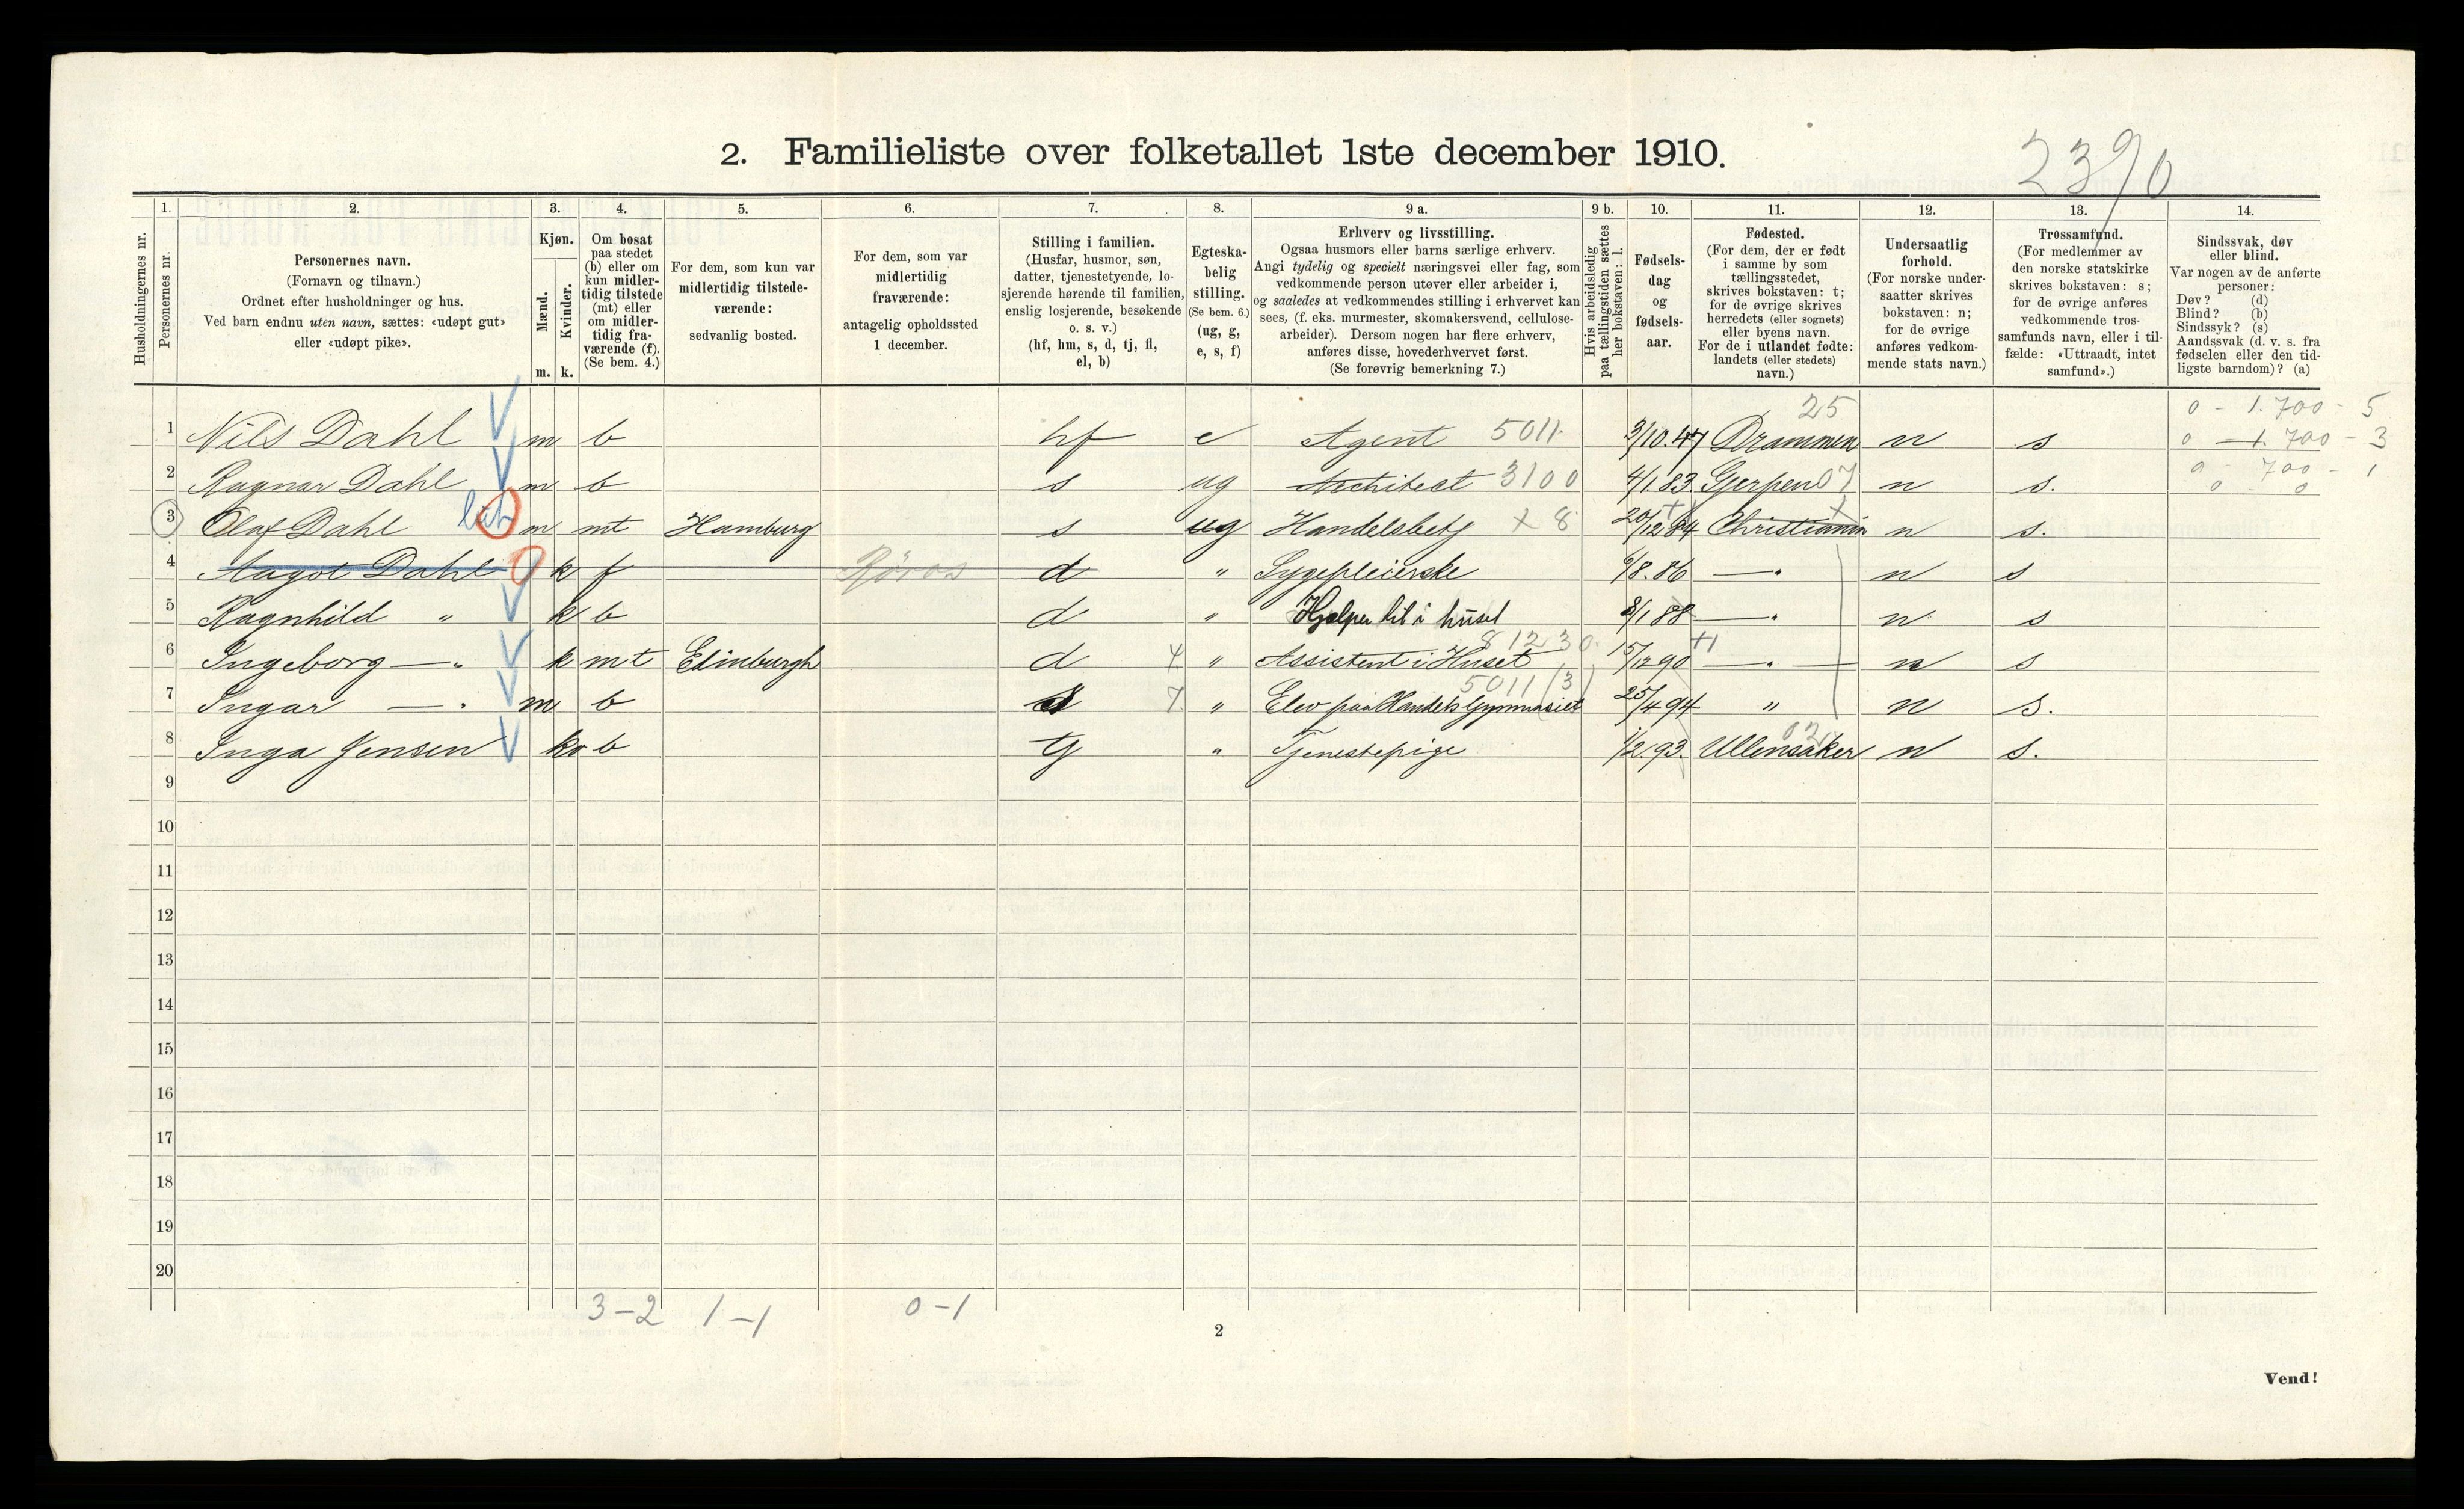 2390
2. Familieliste over folketallet 1ste december 1910.
1. 2. 3. 4. 5. 6. 7. 8. 9 a. 9 b. 10. 11. 12. 13. 14.
Husholdningernes nr.
Personernes nr.
Personernes navn.
(Fornavn og tilnavn.)
Ordnet efter husholdninger og hus.
Ved barn endnu uten navn, sættes: «udøpt gut»
eller «udøpt pike».
Kjøn.
Mænd.
Kvinder.
m. k.
Om bosat
paa stedet
(b) eller om
kun midler-
tidig tilstede
(mt) eller
om midler-
tidig fra-
værende (f).
(Se bem. 4.)
For dem, som kun var
midlertidig tilstede-
værende:
sedvanlig bosted.
For dem, som var
midlertidig
fraværende:
antagelig opholdssted
1 december.
Stilling i familien.
(Husfar, husmor, søn,
datter, tjenestetyende, lo-
sjerende hørende til familien,
enslig losjerende, besøkende
o. s. v.)
(hf, hm, s, d, tj, fl,
el, b)
Egteska-
belig
stilling.
(Se bem. 6.)
(ug, g,
e, s, f)
Erhverv og livsstilling.
Ogsaa husmors eller barns særlige erhverv.
Angi tydelig og specielt næringsvei eller fag, som
vedkommende person utøver eller arbeider i,
og saaledes at vedkommendes stilling i erhvervet kan
sees, (f. eks. murmester, skomakersvend, cellulose-
arbeider). Dersom nogen har flere erhverv,
anføres disse, hovederhvervet først.
(Se forøvrig bemerkning 7.)
Hvis arbeidsledig
paa tællingstiden sættes
her bokstaven: l.
Fødsels-
dag
og
fødsels-
aar.
Fødested.
(For dem, der er født
i samme by som
tællingsstedet,
skrives bokstaven: t;
for de øvrige skrives
herredets (eller sognets)
eller byens navn.
For de i utlandet fødte:
landets (eller stedets)
navn.)
Undersaatlig
forhold.
(For norske under-
saatter skrives
bokstaven: n;
for de øvrige
anføres vedkom-
mende stats navn.)
Trossamfund.
(For medlemmer av
den norske statskirke
skrives bokstaven: s;
for de øvrige anføres
vedkommende tros-
samfunds navn, eller i til-
fælde: «Uttraadt, intet
samfund».)
Sindssvak, døv
eller blind.
Var nogen av de anførte
personer:
Døv? (d)
Blind? (b)
Sindssyk? (s)
Aandssvak (d. v. s. fra
fødselen eller den tid-
ligste barndom)? (a)
25 0 - 1.700 - 5
1 Nils Dahl m b hf e Agent 5011 3/10.47 Drammen n s 0 - 1.700 - 3
0 - 700 - 1
2 Ragnar Dahl m b s ug Architect 3100 4/1.83. Gjerpen 07 n s. 0 - 0
3 Olaf Dahl m mt Hamburg s ug Handelsbetj + 8 20/12 84 Christiania n s.
4 Aagot Dahl k f Röros d " Sygepleierske 6/8.86 — " n s
5 Ragnhild " k b d " Hjælper til i huset 8/1 88 — " n s
81230
6 Ingeborg — " k mt Edinburgh d 4 " Assistent i Huset 15/12 90 — " — n s
5011 (3)
7 Ingar — " m b s 7 " Elev paa Handels Gymnasiet 25/4 94 " n s.
02
8 Inga Jensen k b tj " Tjenestepige 1/2.93. Ullensaker n s.
9
10
11
12
13
14
15
16
17
18
19
20
3-2 1-1 0-1
2
Vend!